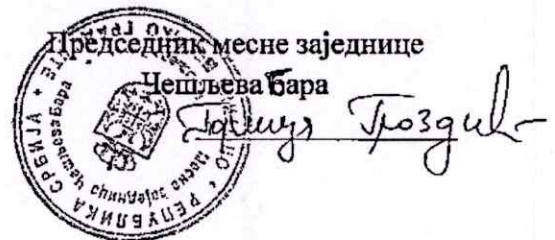 Председник месне заједнице
Чешљева Бара
Гроздић
РЕПУБЛИКА СРБИЈА
Месна заједница Чешљева Бара